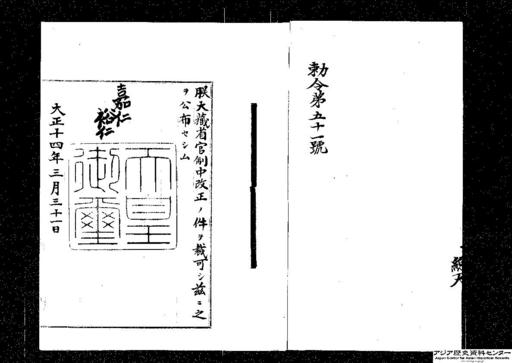 勅令第五十一號
朕大藏省官制中改正ノ件ヲ裁可シ茲ニ之
ヲ公布セシム
嘉仁
裕仁
天皇
御璽
大正十四年三月三十一日
アジア歴史資料センター
Japan Center for Asian Historical Records